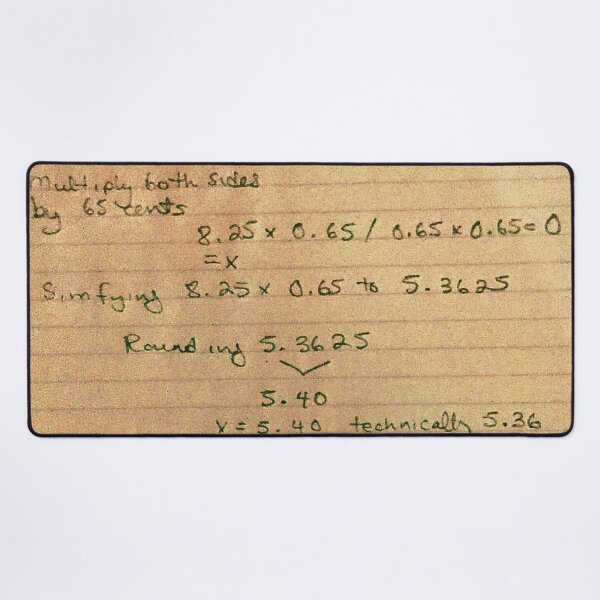 Multiply both sides
by 65 cents
8.25 x 0.65 / 0.65 x 0.65 = 0
= x
Simfying 8.25 x 0.65 to 5.3625
Rounding 5.3625
5.40
x = 5.40 technically 5.36